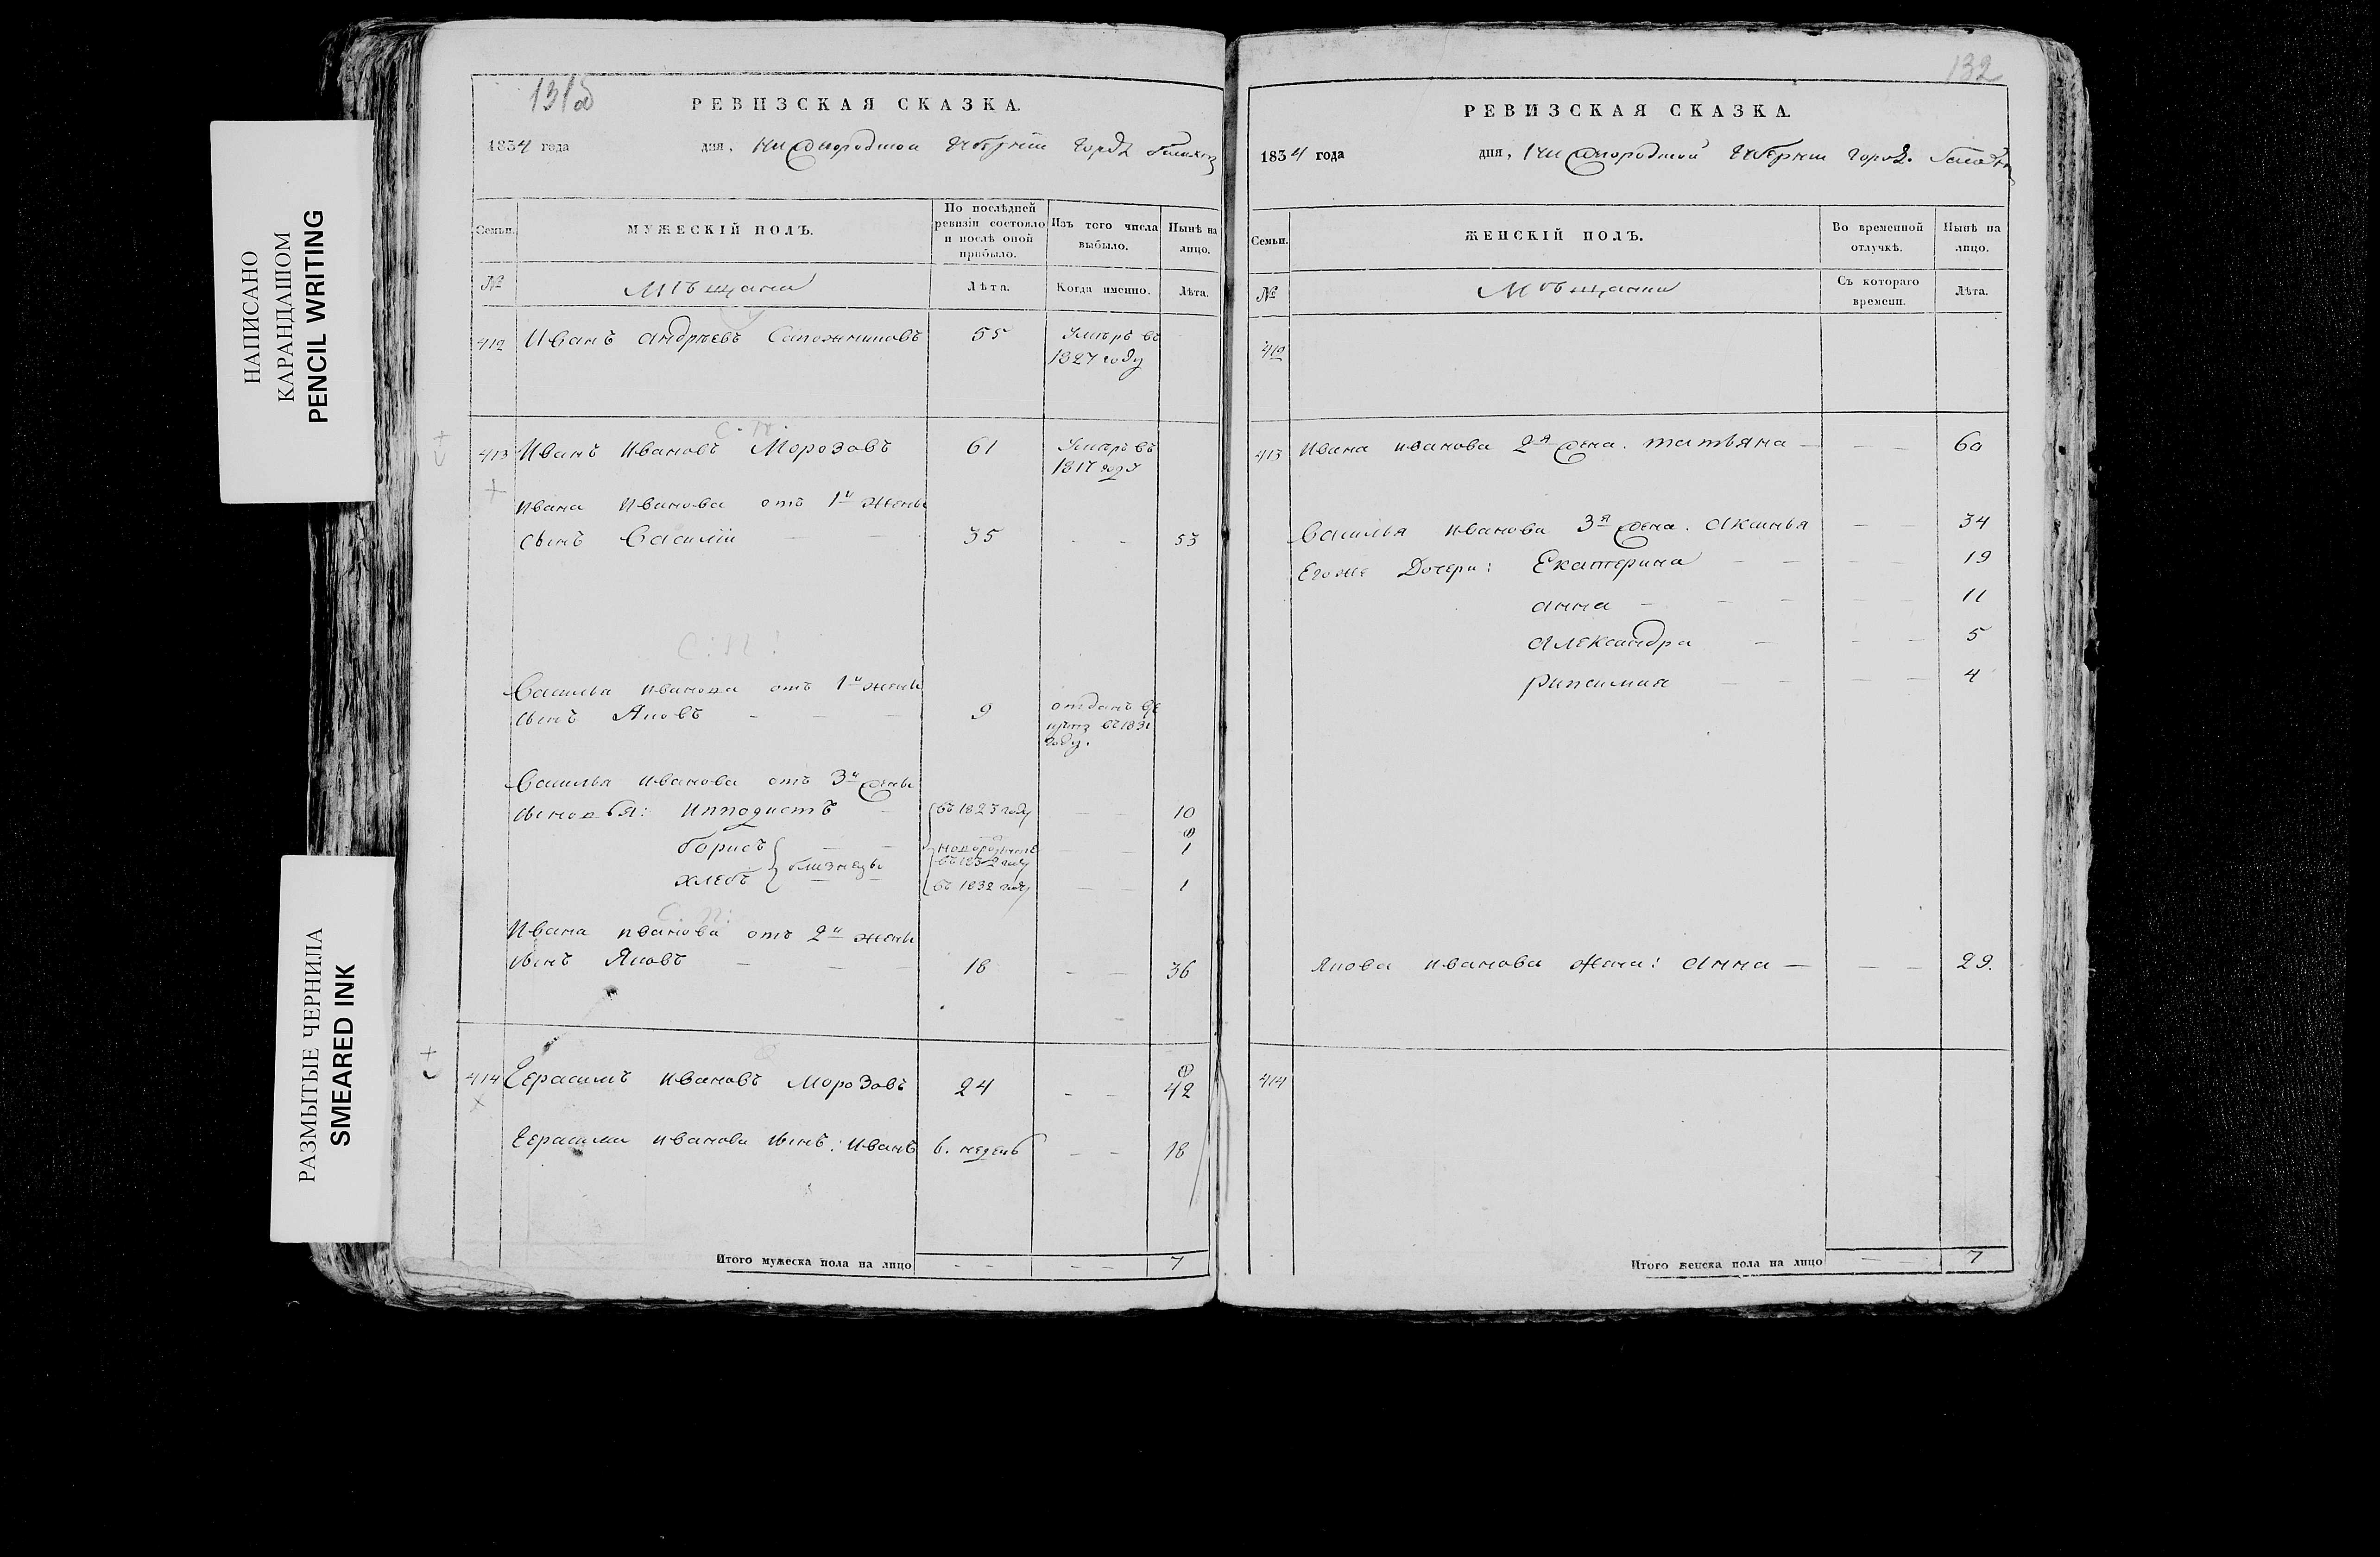 НАПИСАНО
КАРАНДАШОМ
PENCIL WRITING
РАЗМЫТЫЕ ЧЕРНИЛА
SMEARED INK
131об
РЕВИЗСКАЯ СКАЗКА.
1834 года дня, Нижегородской Губернии города
Семьи.
МУЖЕСКІЙ ПОЛЪ.
По послѣдней ревизіи состояло и послѣ оной прибыло.
Изъ того числа выбыло.
Нынѣ на лицо.
№
Мѣщани
Лѣта.
Когда именно.
Лѣта.
412 Иванъ Андреевъ Сапожниковъ 55 Умеръ въ
1827 году
С. П.
413 Иванъ Ивановъ Морозовъ 61 Умеръ въ
1817 году
Ивана Иванова отъ 1й жены
сынъ Василіи — — 35 - - 53
С: П:
Василья Иванова отъ 1й жены
сынъ Яковъ - - - 9 отданъ въ
въ 1831
году.
Василья Иванова отъ 3й жены
сыновья: Ипподистъ - въ 1823 году — — 10
Борисъ — — новорожденные въ 1832 году — — 1
хлебъ близнецы въ 1832 году — — 1
С. П:
Ивана Иванова отъ 2й жены
сынъ Яковъ — — — 18 - — 36
414 Герасимъ Ивановъ Морозовъ 24 - - 42
Герасима Иванова сынъ: Иванъ 6. недель - - 18
Итого мужеска пола на лицо - - - - 7
132
РЕВИЗСКАЯ СКАЗКА.
1834 года дня, Нижегородской Губернии город.
Семьи.
ЖЕНСКІЙ ПОЛЪ.
Во временной отлучкѣ.
Нынѣ на лицо.
№
Мѣщанки
Съ котораго времени.
Лѣта.
412
413 Ивана Иванова 2я жена. Татьяна — — — 60
Василья Иванова 3я жена. Аксинья — — 34
Егоже Дочери: Екатерина — — — — 19
Анна — — — — — 11
Александра — - — 5
Рипсимия — — — — 4
Якова Иванова жена: Анна — — — 29.
414
Итого женска пола на лицо — — 7